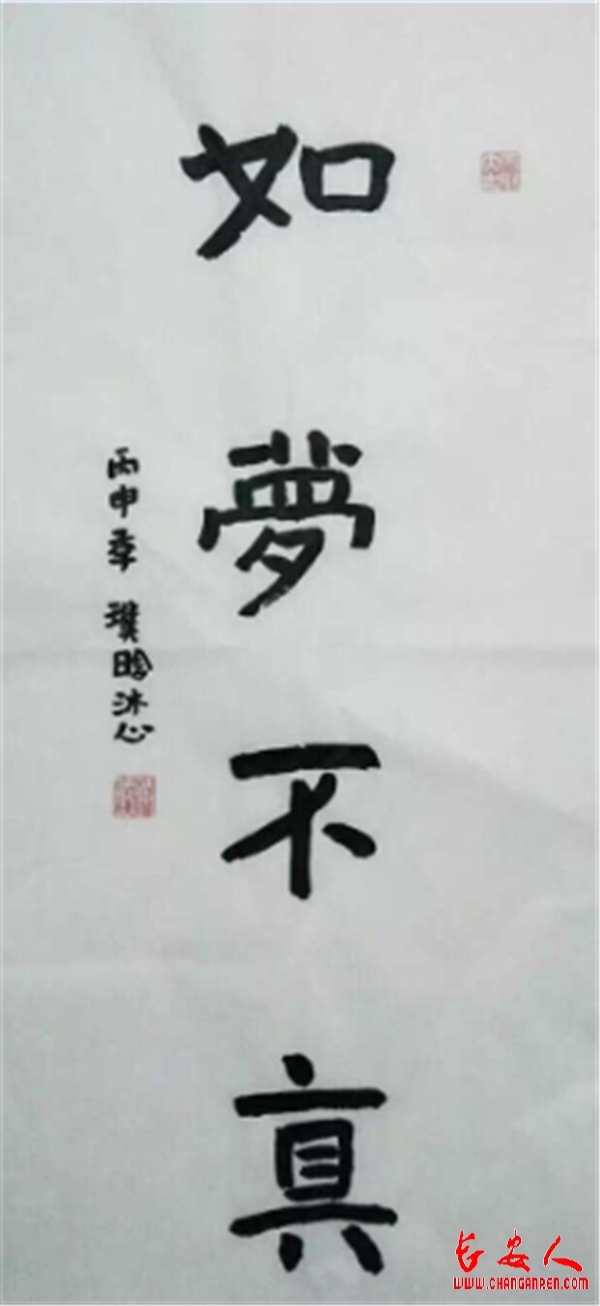 如夢不真
丙申季 璞晗沐心
长安人
WWW.CHANGANREN.COM